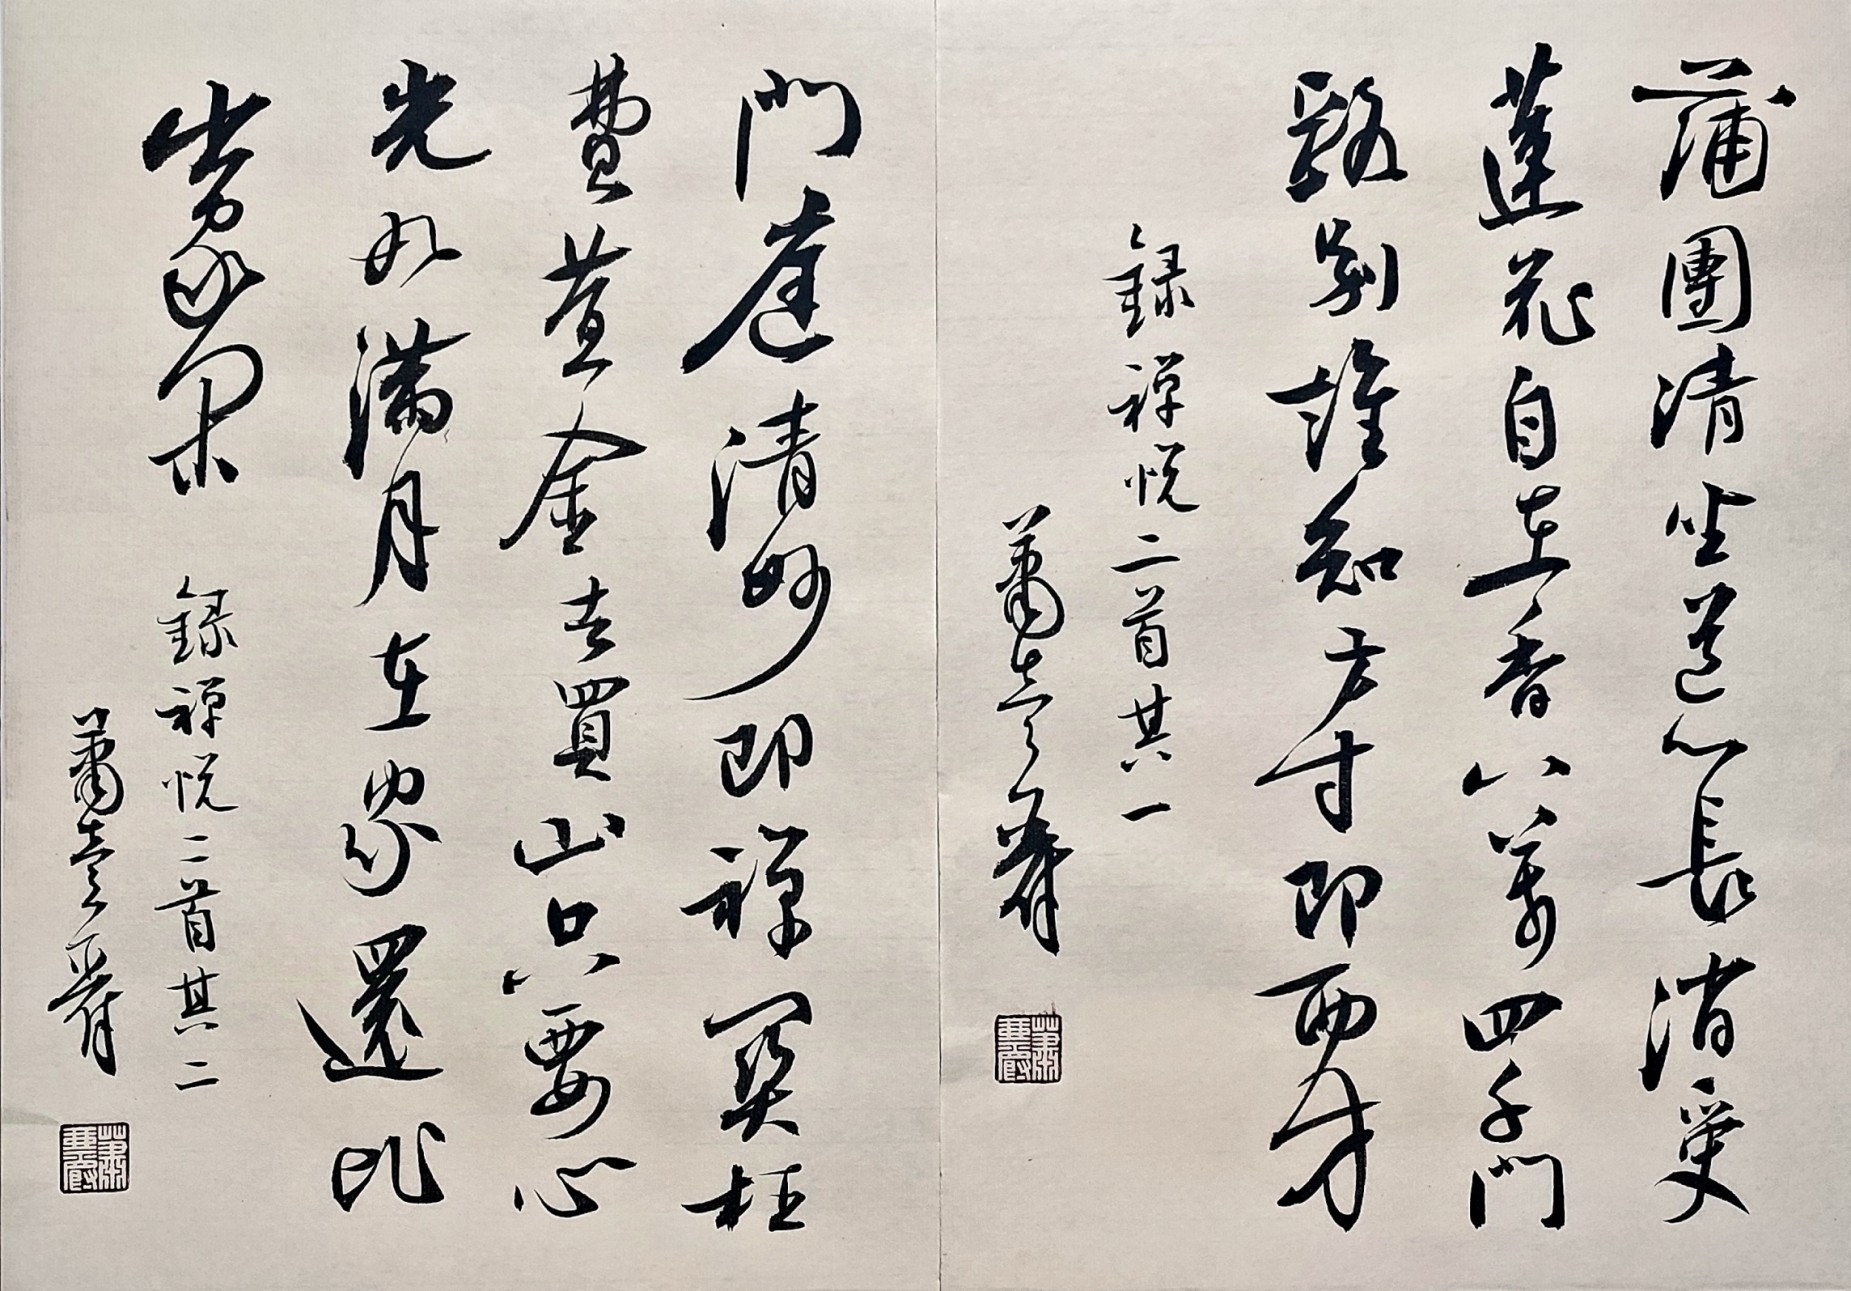 蒲團清坐道心長消受
蓮花自在香八萬四千門
路別誰知方寸即西方
録禪悦二首其一
蕭
門庭清妙即禪関枉
費黃金去買山只要心
光如滿月在家還比
出家閑
録禪悦二首其二
蕭